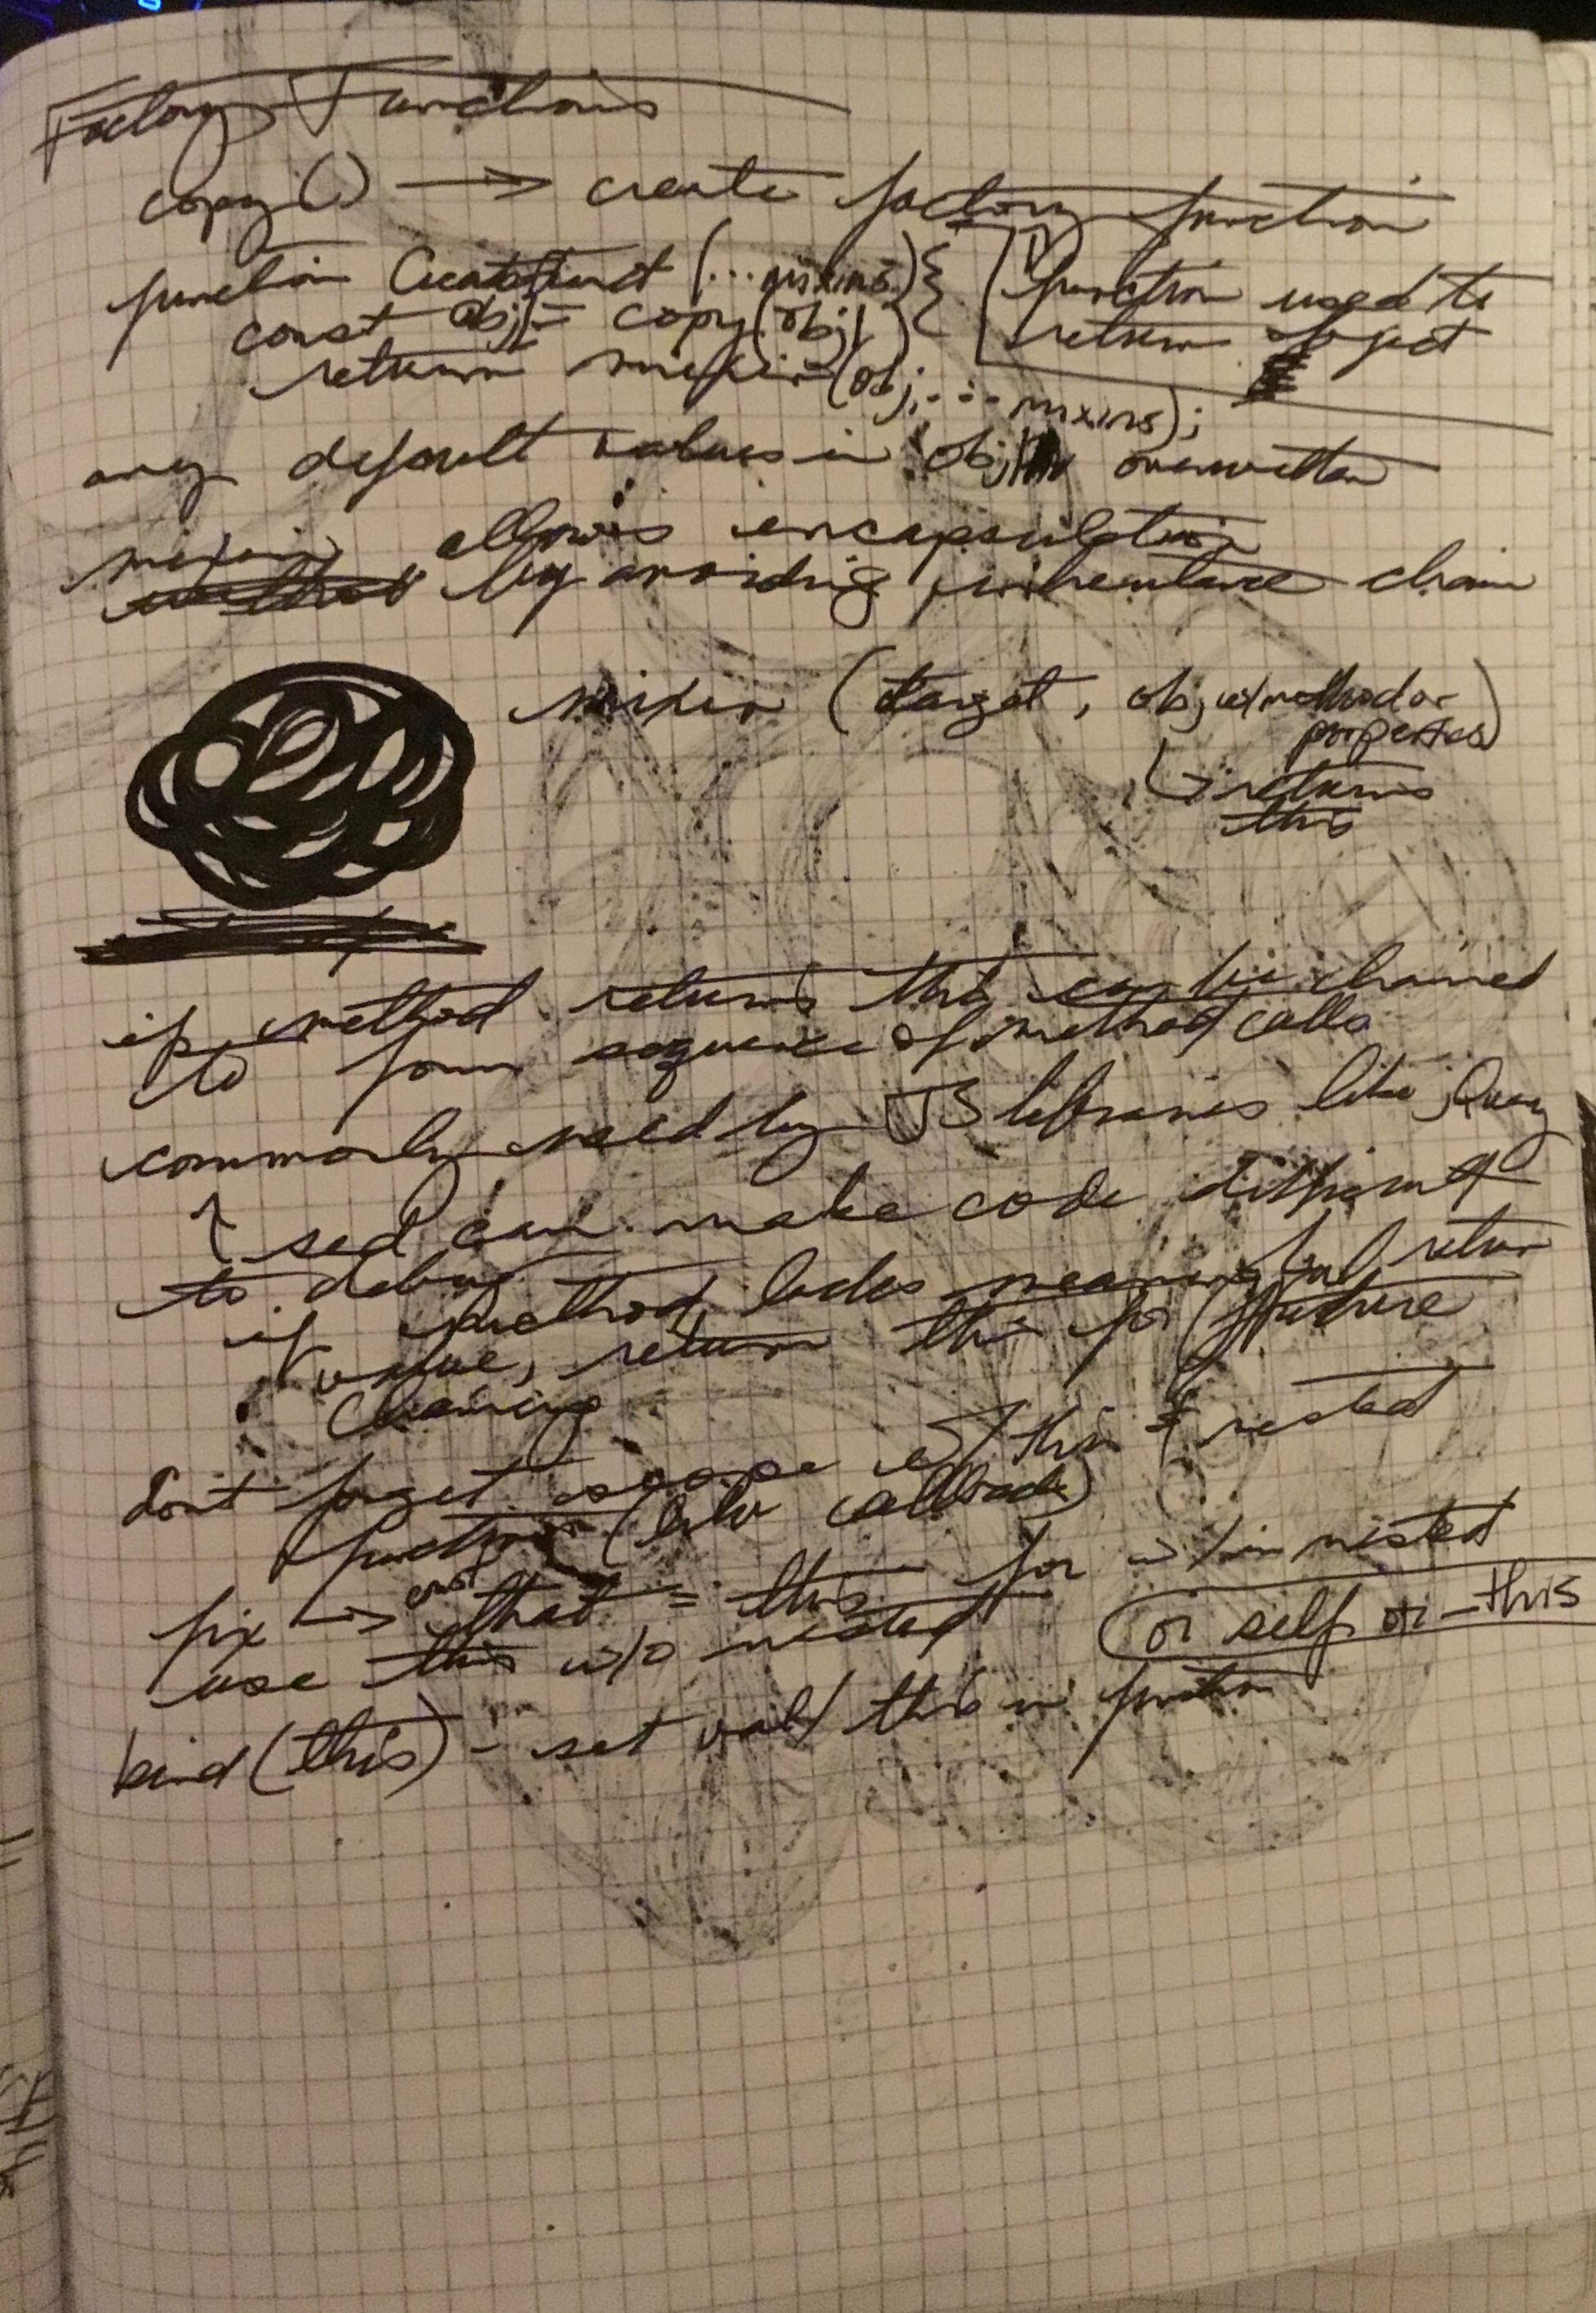 Factory Functions
copy() → create factory function
function Createfunct (...mixins) {
function used to
return object
const obj = copy(obj1)
return mixin(obj, ... mixins);
any default values in obj overwritten
mixin allows encapsulation
by avoiding inheritance chain
mixin (target, obj w/ method or
properties)
↳ returns
this
if method returns this can be chained
to form sequence of method calls
commonly used by JS libraries like jQuery
↑ sed can make code difficult
to debug
if method lacks meaningful return
value, return this for future
chaining
don't forget scope w/ this & nested
function (like callback)
fix → const that = this for w/in nested
use this w/o nested
or self or _this
bind(this) - set val / this in function